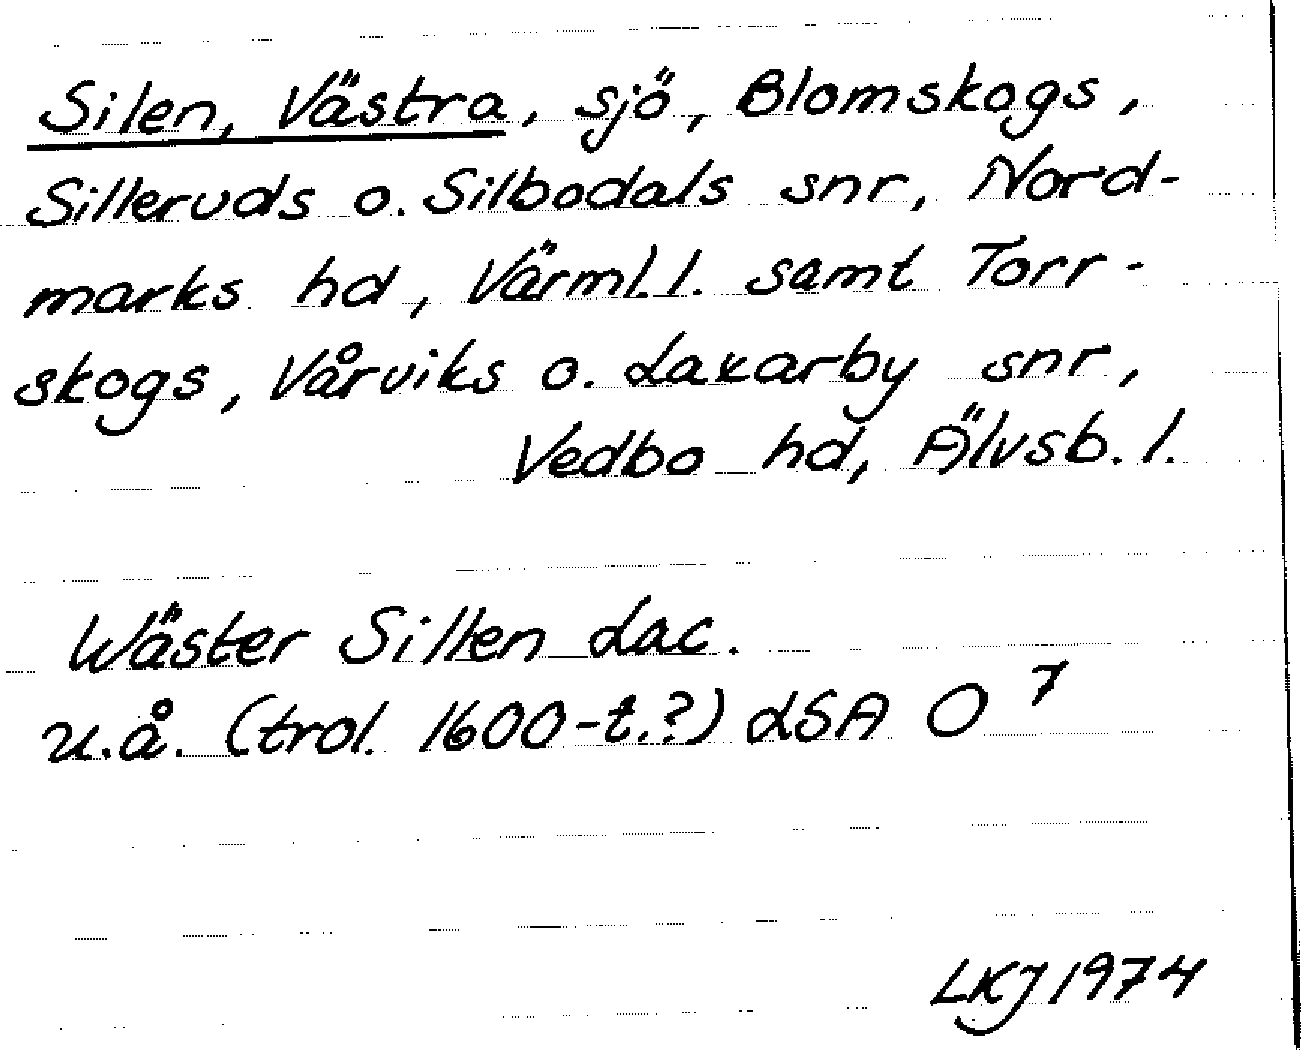 Silen, Västra, sjö, Blomskogs,
Silleruds o. Silbodals snr, Nord-
marks hd, Värml. l. samt Torr-
skogs, Vårviks o. Laxarby snr,
Vedbo hd, Älvsb. l.
Wäster Sillen Lac.
u.å. (trol. 1600-t.?) LSA O 7
LKJ 1974